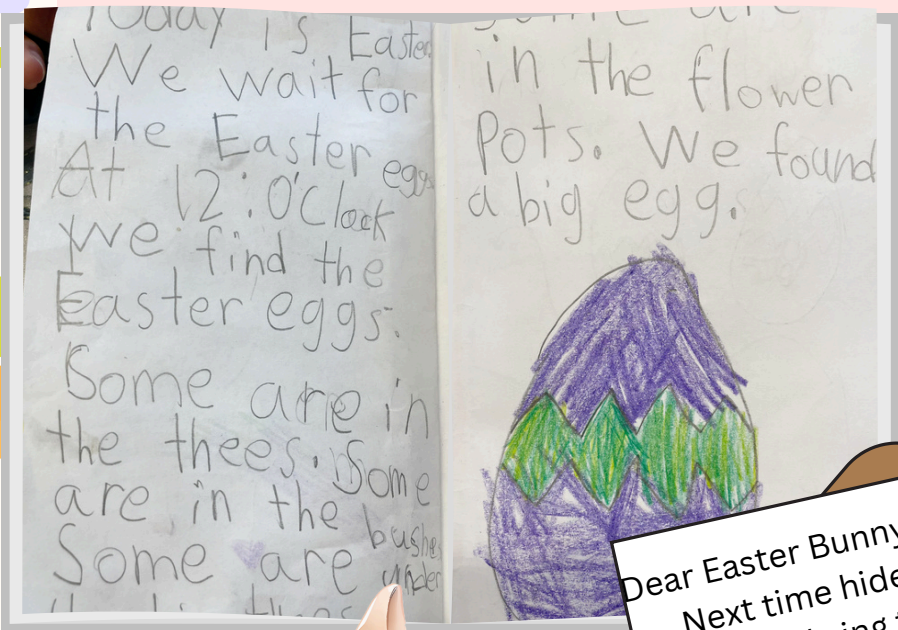 Today is Easter
We wait for
the Easter egg
At 12:O'Clock
we find the
Easter eggs.
Some are in
the thees. Some
are in the bushes
Some are under
Some are
in the flower
Pots. We found
a big egg.
Dear Easter Bunny
Next time hide